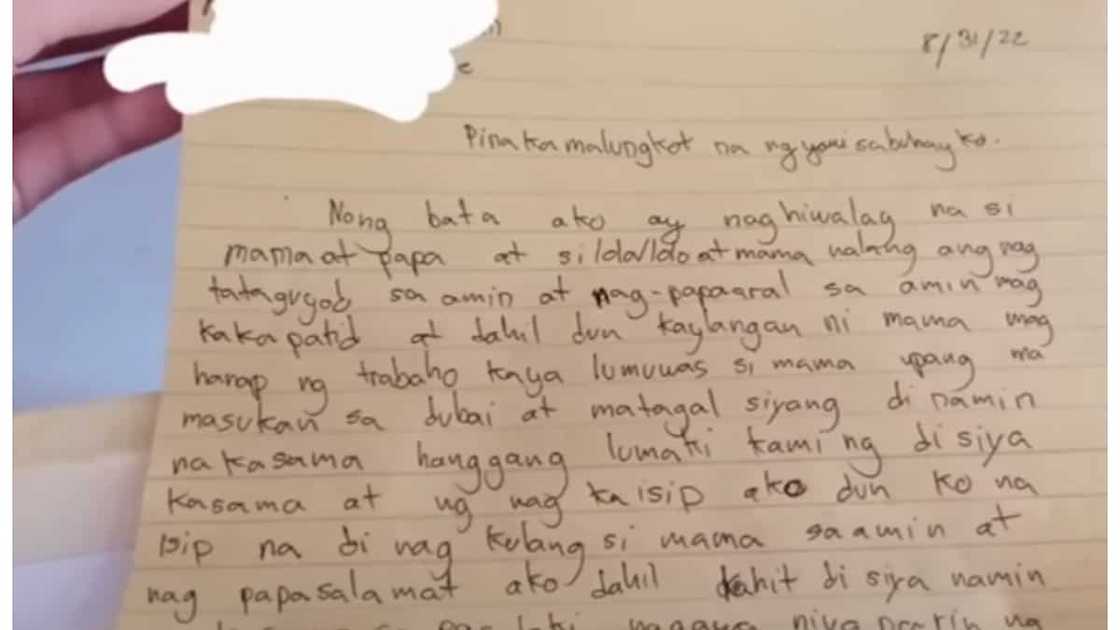 8/31/22
Pinaka malungkot na ng yari sa buhay ko.
Nong bata ako ay naghiwalag na si
mama at papa at si lola/lolo at mama nalang ang nag
tataguyob sa amin at nag-papaaral sa amin mag
kaka patid at dahil dun kaylangan ni mama mag
hanap ng trabaho kaya lumuwas si mama upang ma
masukan sa dubai at matagal siyang di namin
na kasama hanggang lumaki kami ng di siya
kasama at ng nag ka isip ako dun ko na
isip na di nag kulang si mama sa amin at
nag papasalamat ako dahil kahit di siya namin